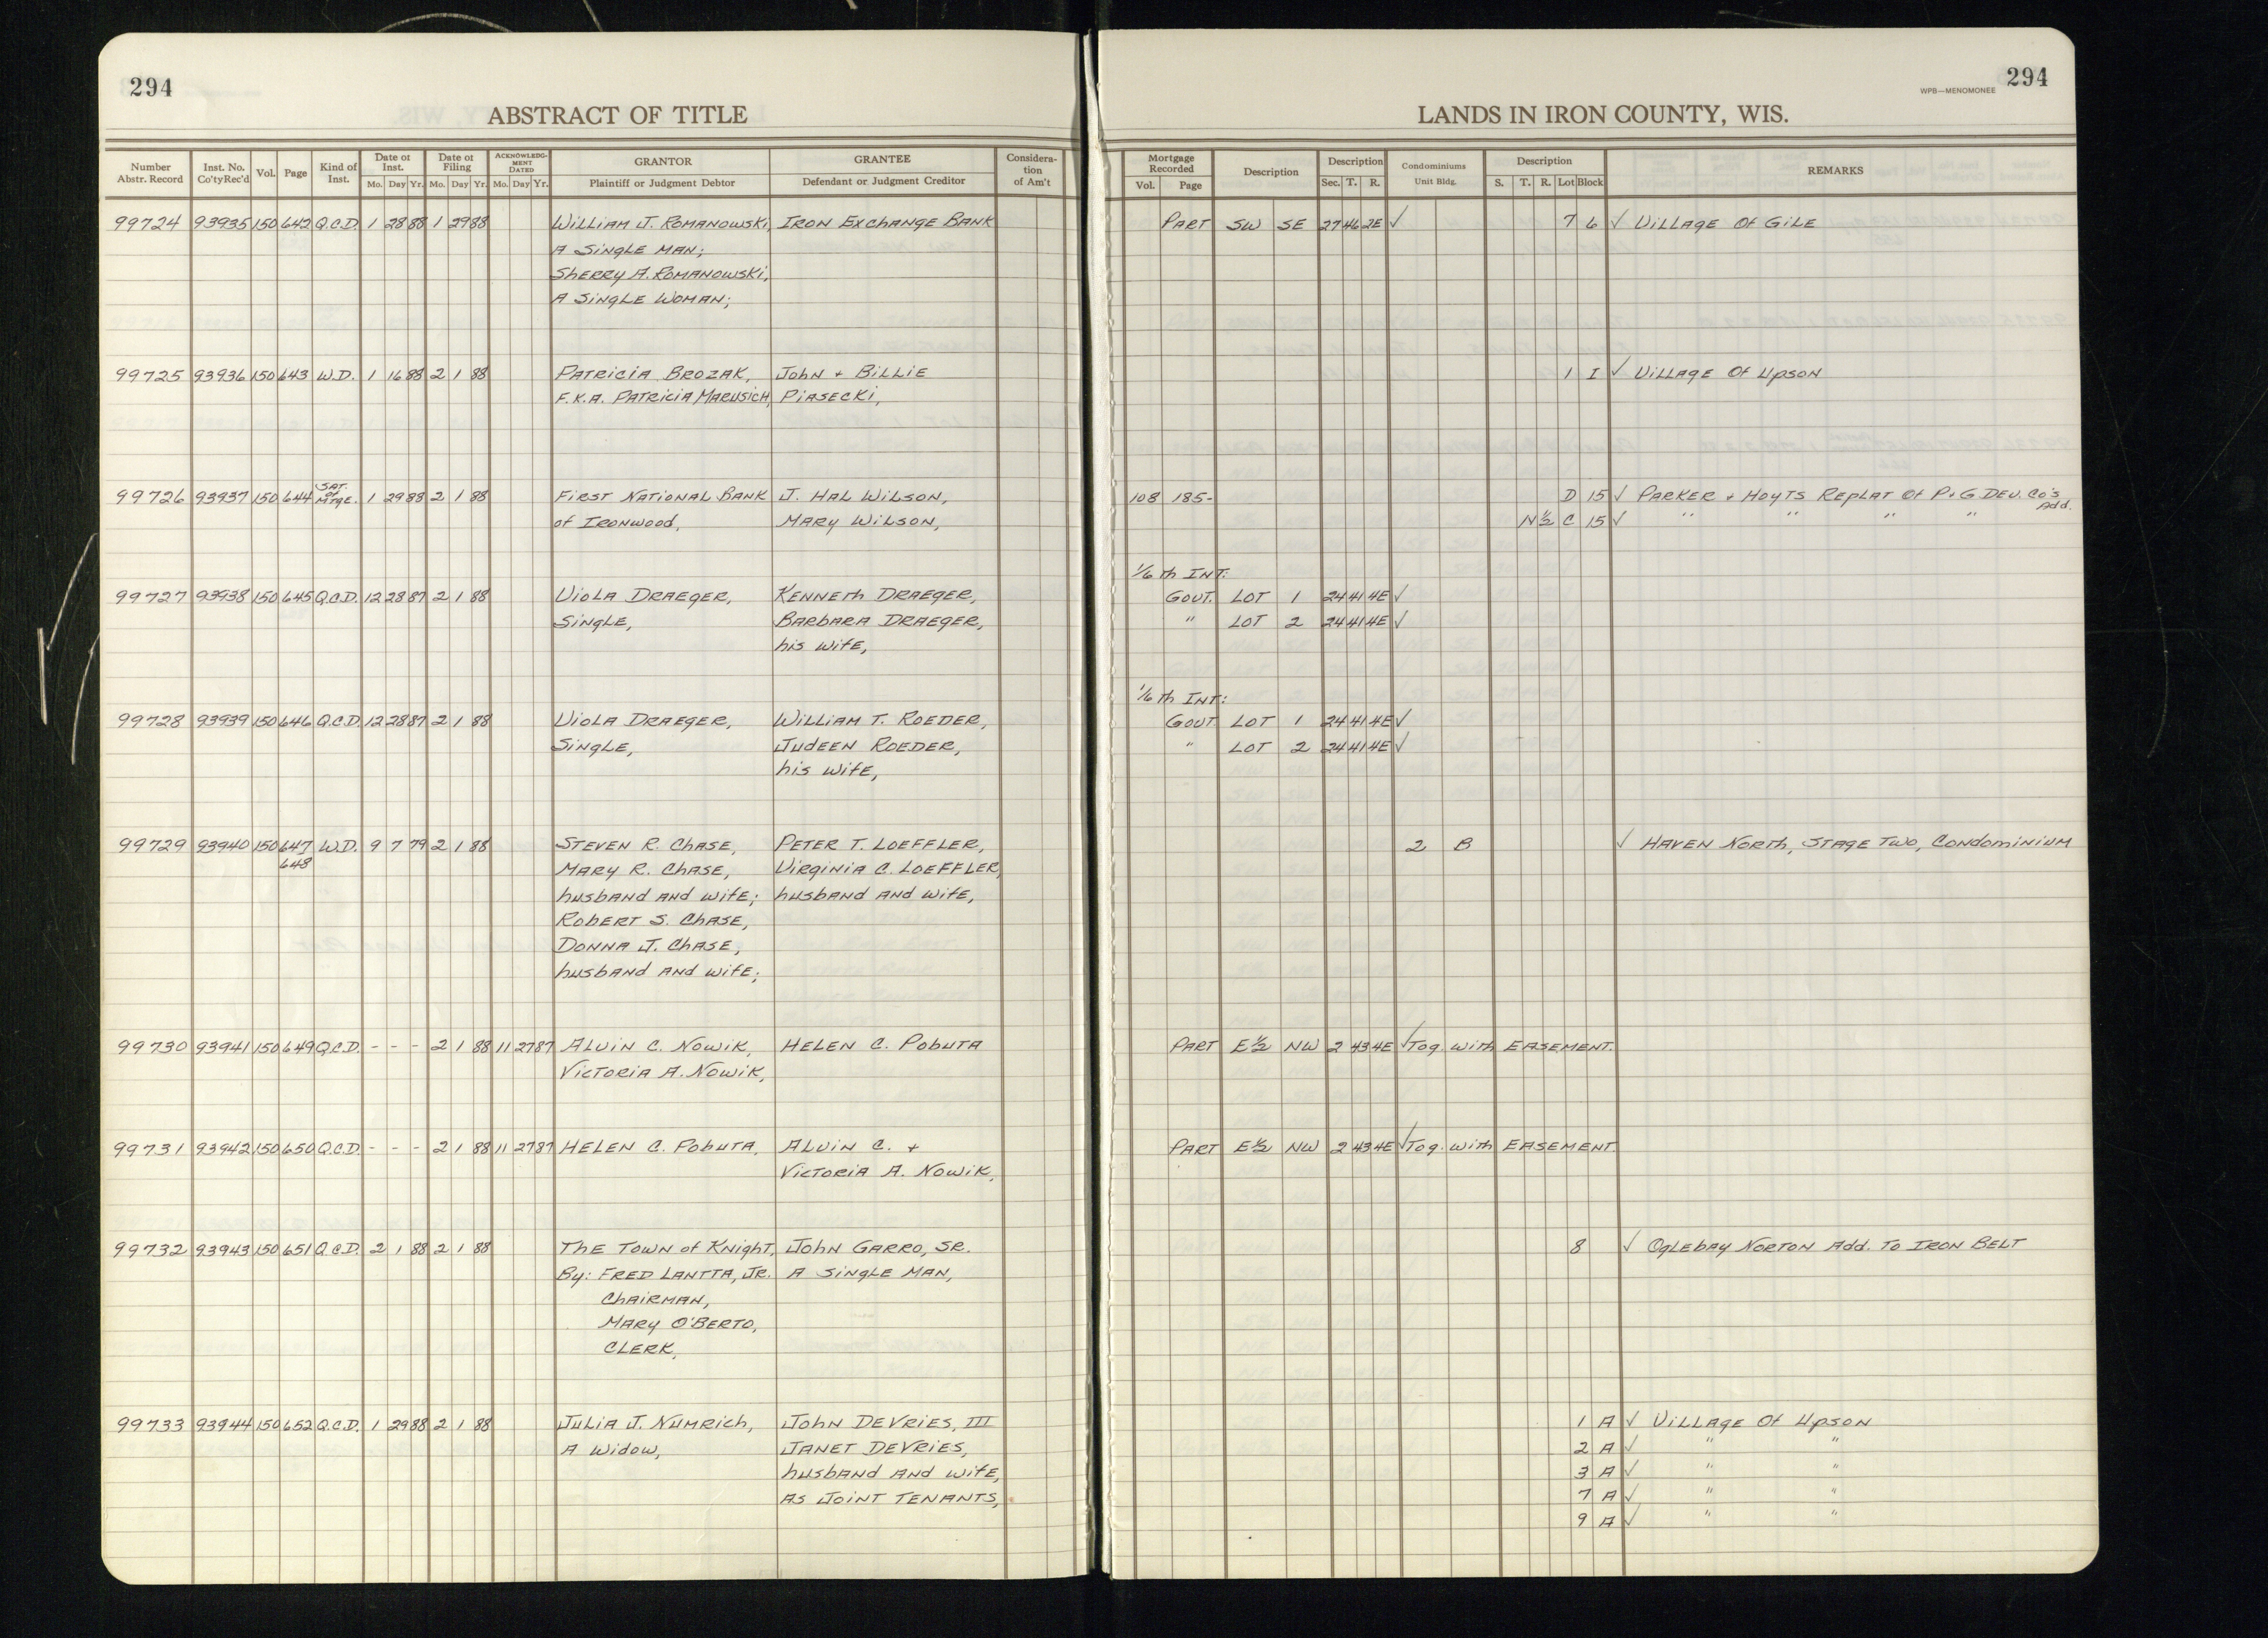 294
ABSTRACT OF TITLE
Number Abstr. Record | Inst. No. Co'ty Rec'd | Vol. | Page | Kind of Inst. | Date of Inst. Mo. Day Yr. | Date of Filing Mo. Day Yr. | ACKNOWLEDGMENT DATED Mo. Day Yr. | GRANTOR Plaintiff or Judgment Debtor | GRANTEE Defendant or Judgment Creditor | Consideration of Am't
99724 93935 150 642 Q.C.D. 1 28 88 1 29 88 William J. Romanowski, Iron Exchange Bank
A Single Man;
Sherry A. Romanowski,
A Single Woman;
99725 93936 150 643 W.D. 1 16 88 2 1 88 Patricia Brozak, John + Billie
F.K.A. Patricia Marusich, Piasecki,
99726 93937 150 644 Sat. of Mtge. 1 29 88 2 1 88 First National Bank J. Hal Wilson,
of Ironwood, Mary Wilson,
99727 93938 150 645 Q.C.D. 12 28 87 2 1 88 Viola Draeger, Kenneth Draeger,
Single, Barbara Draeger,
his wife,
99728 93939 150 646 Q.C.D. 12 28 87 2 1 88 Viola Draeger, William T. Roeder,
Single, Judeen Roeder,
his wife,
99729 93940 150 647 W.D. 9 7 79 2 1 88 Steven R. Chase, Peter T. Loeffler,
648 Mary R. Chase, Virginia C. Loeffler,
husband and wife; husband and wife,
Robert S. Chase,
Donna J. Chase,
husband and wife;
99730 93941 150 649 Q.C.D. - - - 2 1 88 11 27 87 Alvin C. Nowik, Helen C. Pobuta
Victoria A. Nowik,
99731 93942 150 650 Q.C.D. - - - 2 1 88 11 27 87 Helen C. Pobuta, Alvin C. +
Victoria A. Nowik,
99732 93943 150 651 Q.C.D. 2 1 88 2 1 88 The Town of Knight, John Garro, Sr.
By: Fred Lantta, Jr. A Single Man,
Chairman,
Mary O'Berto,
Clerk,
99733 93944 150 652 Q.C.D. 1 29 88 2 1 88 Julia J. Numrich, John DeVries, III
A Widow, Janet DeVries,
husband and wife,
As Joint Tenants,
294
WPB—MENOMONEE
LANDS IN IRON COUNTY, WIS.
Mortgage Recorded Vol. Page | Description | Description Sec. T. R. | Condominiums Unit Bldg. | Description S. T. R. Lot Block | REMARKS
Part SW SE 27 46 2E ✓ 7 6 ✓ Village Of Gile
1 I ✓ Village Of Upson
108 185- D 15 ✓ Parker + Hoyts Replat Of P+G Dev. Co's Add.
N½ C 15 ✓ " " " "
1/6 th Int:
Govt. Lot 1 24 41 4E ✓
" Lot 2 24 41 4E ✓
1/6 th Int:
Govt Lot 1 24 41 4E ✓
" Lot 2 24 41 4E ✓
2 B ✓ Haven North, Stage Two, Condominium
Part E½ NW 2 43 4E ✓ Tog. with Easement.
Part E½ NW 2 43 4E ✓ Tog. with Easement.
8 ✓ Oglebay Norton Add. To Iron Belt
1 A ✓ Village Of Upson
2 A ✓ " "
3 A ✓ " "
7 A ✓ " "
9 A ✓ " "